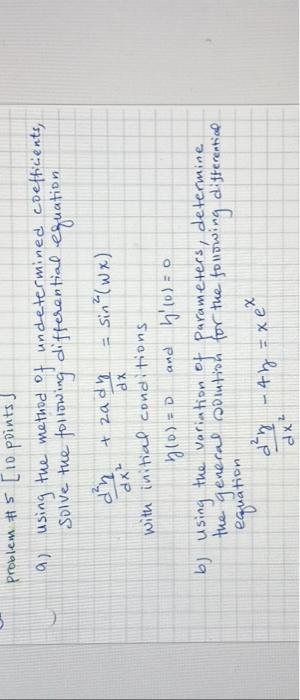 Problem # 5 [10 points]
a) using the method of undetermined coefficients,
solve the following differential equation
d²y/dx² + 2a dy/dx = sin²(Wx)
with initial conditions
y(0) = 0 and y'(0) = 0
b) using the variation of parameters, determine
the general solution for the following differential
equation
d²y/dx² - 4y = x eˣ